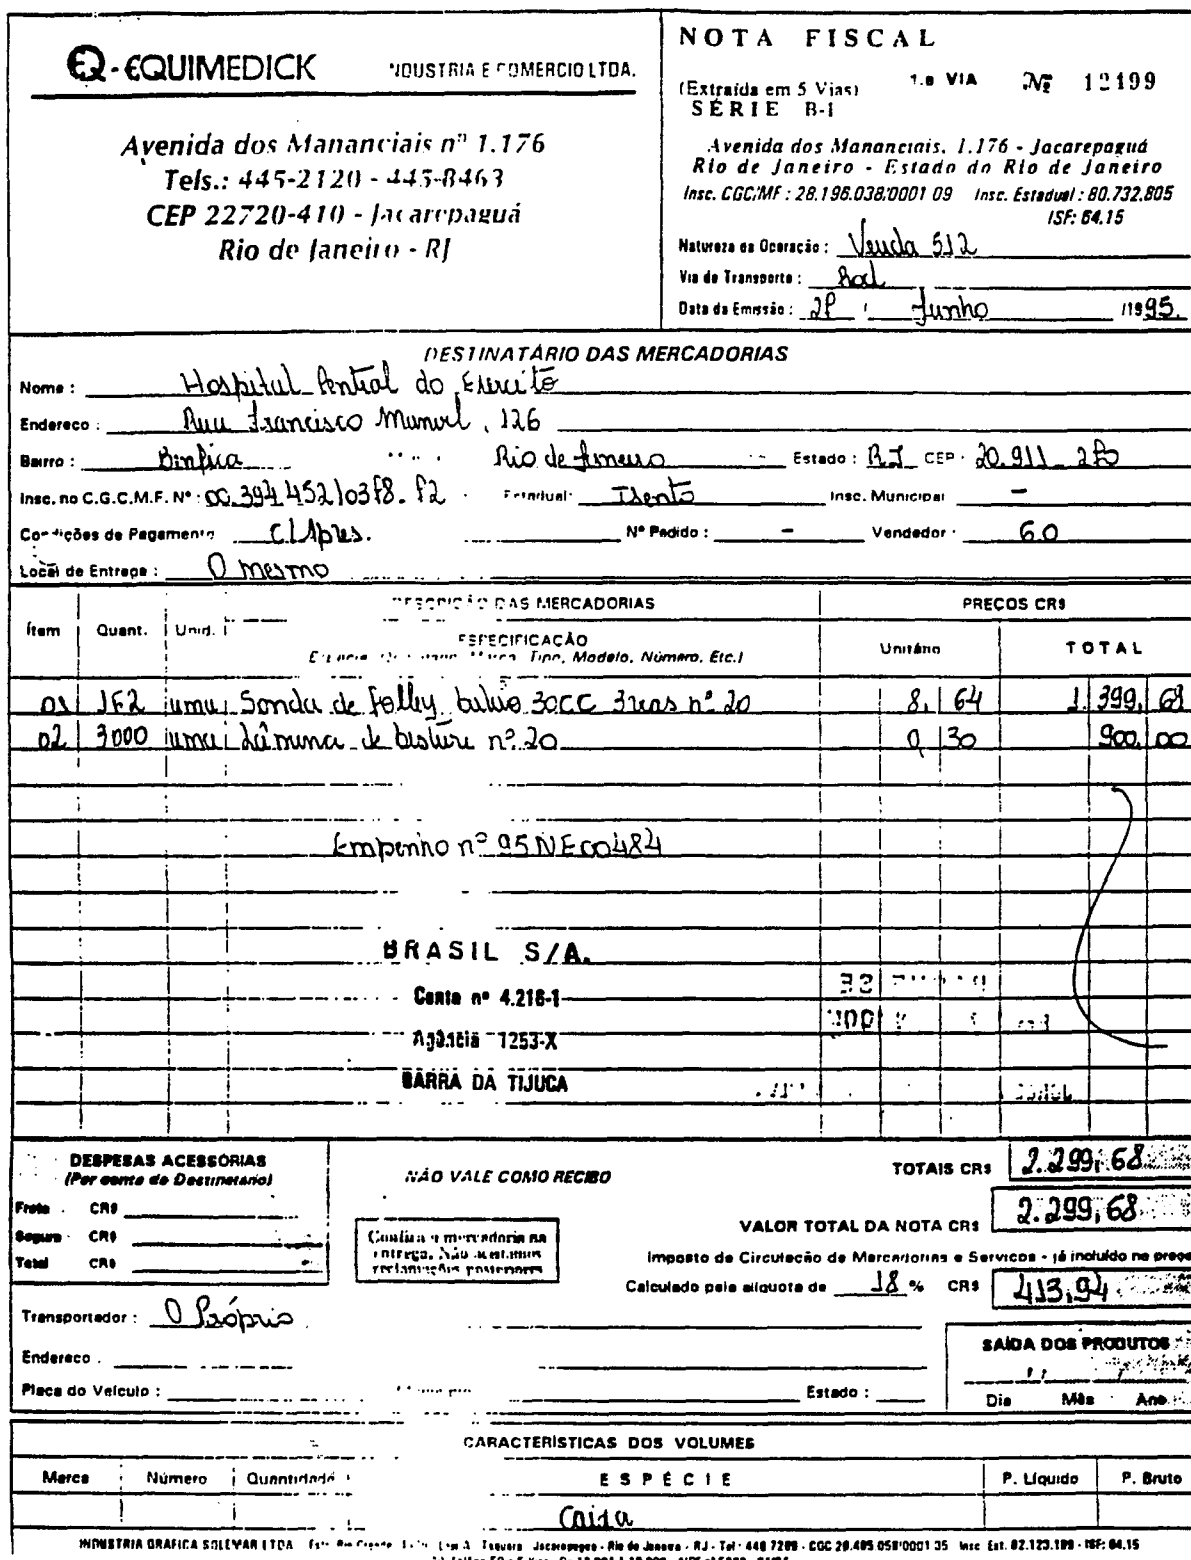 EQ - EQUIMEDICK INDUSTRIA E COMERCIO LTDA.
Avenida dos Mananciais nº 1.176
Tels.: 445-2120 - 445-8463
CEP 22720-410 - Jacarepaguá
Rio de Janeiro - RJ
NOTA FISCAL
(Extraída em 5 Vias) 1.a VIA Nº 12199
SÉRIE B-1
Avenida dos Mananciais, 1.176 - Jacarepaguá
Rio de Janeiro - Estado do Rio de Janeiro
Insc. CGC/MF : 28.196.038/0001 09 Insc. Estadual : 80.732.805
ISF: 64.15
Natureza da Operação : Venda 512
Via de Transporte : Rod.
Data da Emissão : 28 / Junho /1995.
DESTINATÁRIO DAS MERCADORIAS
Nome : Hospital Central do Exercito
Endereco : Rua Francisco Manuel, 126
Bairro : Benfica Rio de Janeiro Estado : RJ CEP 20.911-280
Insc. no C.G.C.M.F. Nº : 00.394.452/0378-82 Estadual: Isento Insc. Municipal -
Condições de Pagamento C/Apres. Nº Pedido : - Vendedor : 60
Local de Entrega : O mesmo
DESCRIÇÃO DAS MERCADORIAS PREÇOS CR$
Ítem Quant. Unid. ESPECIFICAÇÃO Unitário TOTAL
Marca, Tipo, Modelo, Número, Etc.)
01 162 uma Sonda de Folley balão 30CC 3vias nº 20 8,64 1.399,68
02 3000 uma Lâmina de bisturi nº 20 0,30 900,00
Empenho nº 95NE00484
BRASIL S/A.
Conta nº 4.216-1
Agência 1253-X
BARRA DA TIJUCA
DESPESAS ACESSÓRIAS
(Por conta do Destinatário)
Frete CR$
Seguro CR$
Total CR$
NÃO VALE COMO RECIBO
Confira a mercadoria na
entrega. Não aceitamos
reclamações posteriores
TOTAIS CR$ 2.299,68
VALOR TOTAL DA NOTA CR$ 2.299,68
Imposto de Circulação de Mercadorias e Servicos - já incluído no preço
Calculado pela alíquota de 18 % CR$ 413,94
Transportador : O Próprio
Endereco :
Placa do Veículo : Estado :
SAÍDA DOS PRODUTOS
Dia Mês Ano
CARACTERÍSTICAS DOS VOLUMES
Marca Número Quantidade ESPÉCIE P. Líquido P. Bruto
Caixa
INDUSTRIA GRAFICA SOLEMAR LTDA Jacarepagua - Rio de Janeiro - RJ - Tel: 446 7289